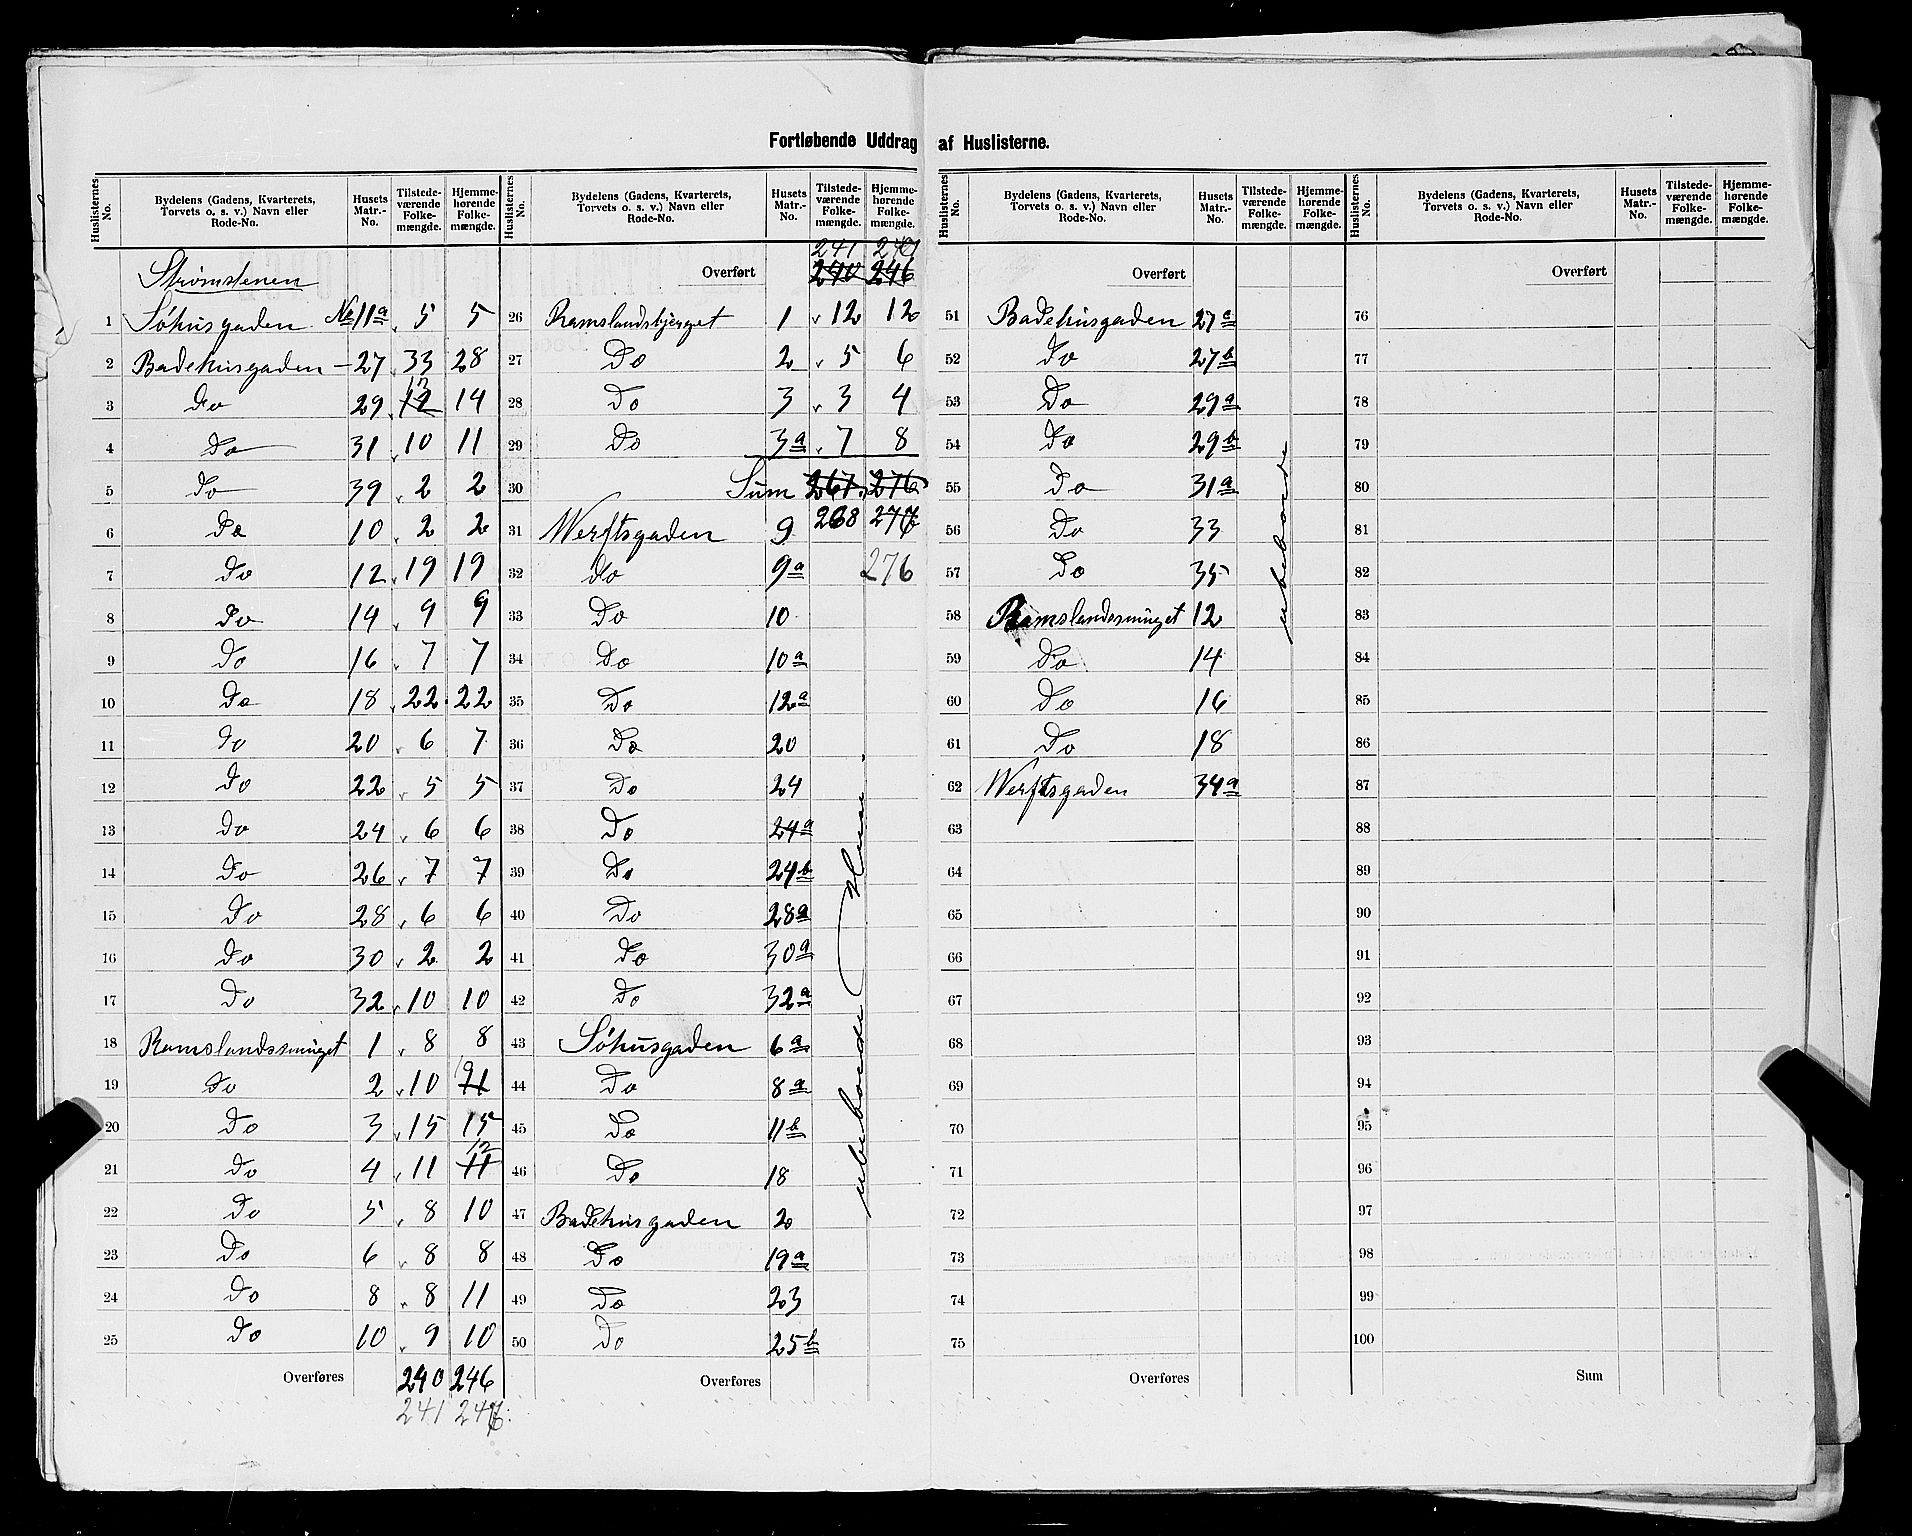 Fortløbende Uddrag af Huslisterne.
Huslisternes No. | Bydelens (Gadens, Kvarterets, Torvets o. s. v.) Navn eller Rode-No. | Husets Matr.-No. | Tilstedeværende Folkemængde. | Hjemmehørende Folkemængde.
Strømstenen
1 Søhusgaden No 11a 5 5
2 Badehusgaden - 27 33 28
3 Do 29 12 13 14
4 Do 31 10 11
5 Do 39 2 2
6 Do 10 2 2
7 Do 12 19 19
8 Do 14 9 9
9 Do 16 7 7
10 Do 18 22 22
11 Do 20 6 7
12 Do 22 5 5
13 Do 24 6 6
14 Do 26 7 7
15 Do 28 6 6
16 Do 30 2 2
17 Do 32 10 10
18 Ramslandssminget 1 8 8
19 Do 2 10 11 9
20 Do 3 15 15
21 Do 4 11 11 12
22 Do 5 8 10
23 Do 6 8 8
24 Do 8 8 11
25 Do 10 9 10
Overføres 240 246
241 246
Huslisternes No. | Bydelens (Gadens, Kvarterets, Torvets o. s. v.) Navn eller Rode-No. | Husets Matr.-No. | Tilstedeværende Folkemængde. | Hjemmehørende Folkemængde.
241
Overført 240 246
26 Ramslandsbjerget 1 12 12
27 Do 2 5 6
28 Do 3 3 4
29 Do 3a 7 8
30 Sum 267 276
31 Werftsgaden 9 268 277
32 Do 9a 276
33 Do 10
34 Do 10a
35 Do 12a
36 Do 20
37 Do 24
38 Do 24a
39 Do 24b
40 Do 28a
41 Do 30a
42 Do 32a
43 Søhusgaden 6a
44 Do 8a
45 Do 11b
46 Do 18
47 Badehusgaden 2
48 Do 19a
49 Do 23
50 Do 25b
ubeboede Huse
Overføres
Huslisternes No. | Bydelens (Gadens, Kvarterets, Torvets o. s. v.) Navn eller Rode-No. | Husets Matr.-No. | Tilstedeværende Folkemængde. | Hjemmehørende Folkemængde.
Overført
51 Badehusgaden 27a
52 Do 27b
53 Do 29a
54 Do 29b
55 Do 31a
56 Do 33
57 Do 35
58 Ramslandssminget 12
59 Do 14
60 Do 16
61 Do 18
62 Werftsgaden 34a
63
64
65
66
67
68
69
70
71
72
73
74
75
ubeboede
Overføres
Huslisternes No. | Bydelens (Gadens, Kvarterets, Torvets o. s. v.) Navn eller Rode-No. | Husets Matr.-No. | Tilstedeværende Folkemængde. | Hjemmehørende Folkemængde.
Overført
76
77
78
79
80
81
82
83
84
85
86
87
88
89
90
91
92
93
94
95
96
97
98
99
100
Sum